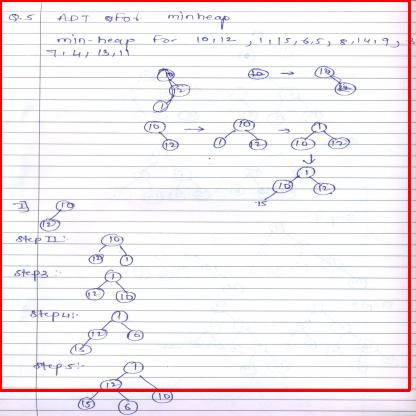 Q.5 ADT for minheap
min-heap for 10, 12, 1, 15, 6, 5, 8, 14, 9, 3
7, 4, 13, 11
10 12 1
10 → 10 12
10 12 → 10 1 12 → 1 10 12
1 10 12 15
I) 10 12
Step II:- 10 12 1
Step3:- 1 12 10
Step4:- 1 12 6 15
Step5:- 1 12 10 15 6